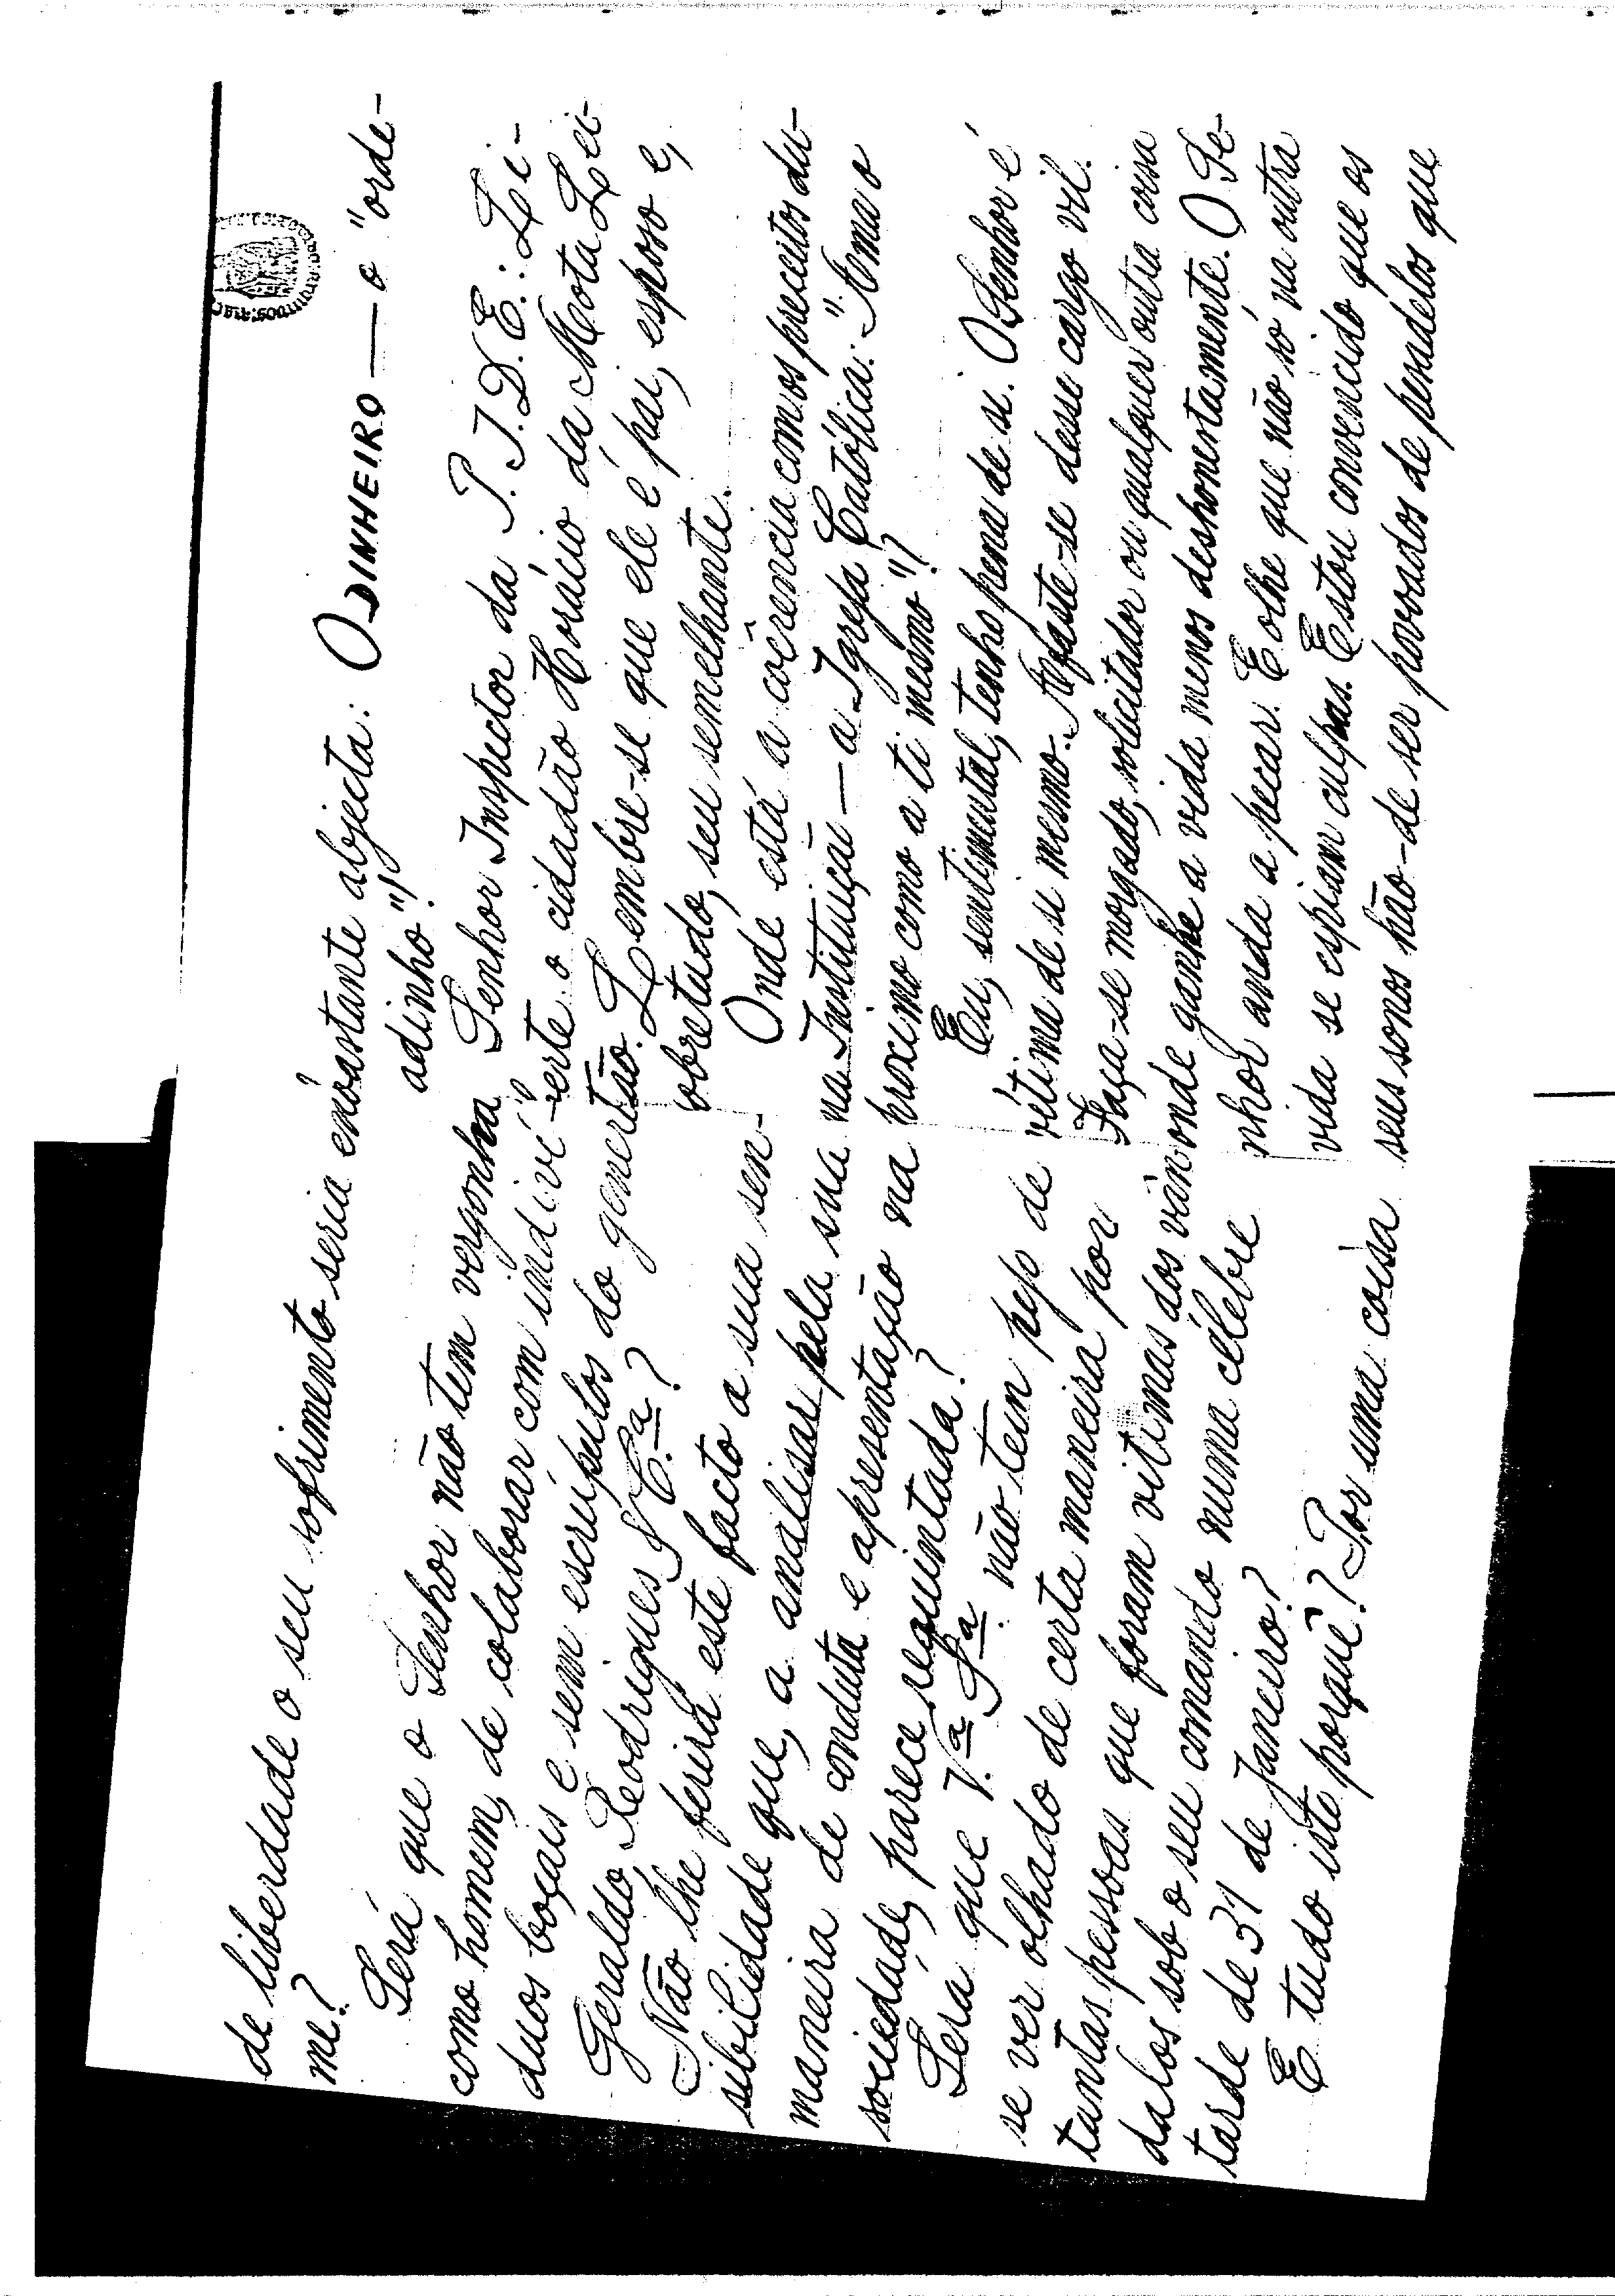 de liberdade o seu sofrimento seria enór
me?
Será que o Senhor não tem vergonha
como homem, de colaborar com indiví-
duos boçais e sem escrúpulos do gener
Geraldo, Rodrigues & C.ª?
Não lhe ferirá este facto a sua sen-
sibilidade que, a analisar pela sua
maneira de conduta e apresentação na
sociedade, parece requintada?
Será que V.ª S.ª não tem pejo de
se ver olhado de certa maneira por
tantas pessoas que foram vitimas dos vân
dalos sob o seu comando numa célebre
tarde de 31 de Janeiro?
E tudo isto porquê? Por uma coisa
bastante abjecta: O DINHEIRO — o "orde-
adinho"!
Senhor Inspector da P.I.D.E.: Li-
erte o cidadão Horácio da Mota Lei-
tão. Lembre-se que ele é pai, esposo e,
sobretudo, seu semelhante.
Onde está a coêrencia com os preceitos du-
na Instituição — a Igreja Católica: "Ama o
proximo como a ti mesmo"?
Eu, sentimental, tenho pena de si. O Senhor é
vítima de si mesmo. Afaste-se desse cargo vil.
Faça-se morgado, solicitador ou qualquer outra coisa
onde ganhe a vida menos deshonestamente. O Se-
nhor anda a pecar. E olhe que não só na outra
vida se espiam culpas. Estou convencido que os
seus sonos hão-de ser povoados de pesadelos que